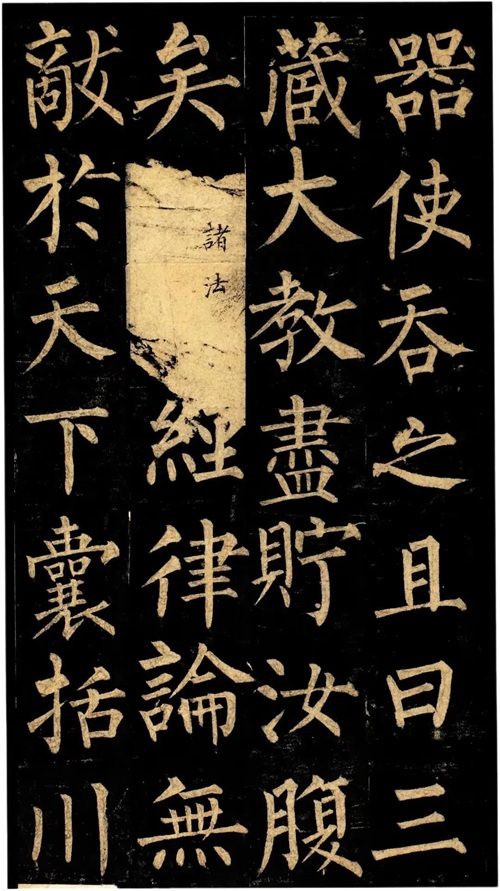 器使吞之且曰三
藏大教盡貯汝腹
矣諸法經律論無
敵於天下囊括川